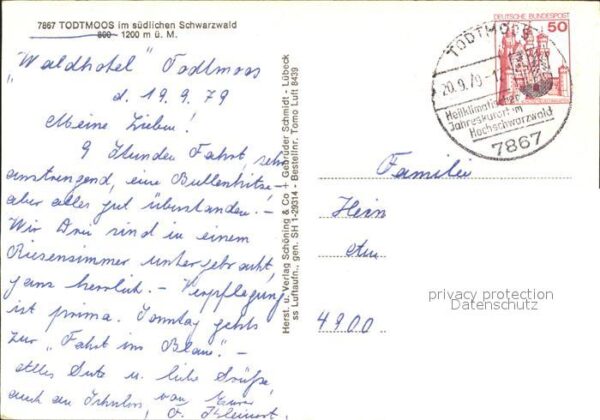 7867 TODTMOOS im südlichen Schwarzwald
800 - 1200 m ü. M.
"Waldhotel" Todtmoos
d. 19.9.79
Meine Lieben!
9 Stunden Fahrt, sehr
anstrengend, eine Bullenhitze -
aber alles gut überstanden. -
Wir Drei sind in einem
Riesenzimmer untergebracht,
ganz herrlich. - Verpflegung
ist prima. Sonntag gehts
zur "Fahrt ins Blaue". -
Alles Gute u. liebe Grüße,
auch an von Eurer
Herst. u. Verlag Schöning & Co + Gebrüder Schmidt - Lübeck
ss Luftaufn., gen. SH 1-29314 - Bestellnr. Tomo Luft 8439
DEUTSCHE BUNDESPOST
50
TODTMOOS
20.9.79-1
Heilklimatischer
Jahreskurort im
Hochschwarzwald
7867
Familie
Hein
4900
privacy protection
Datenschutz